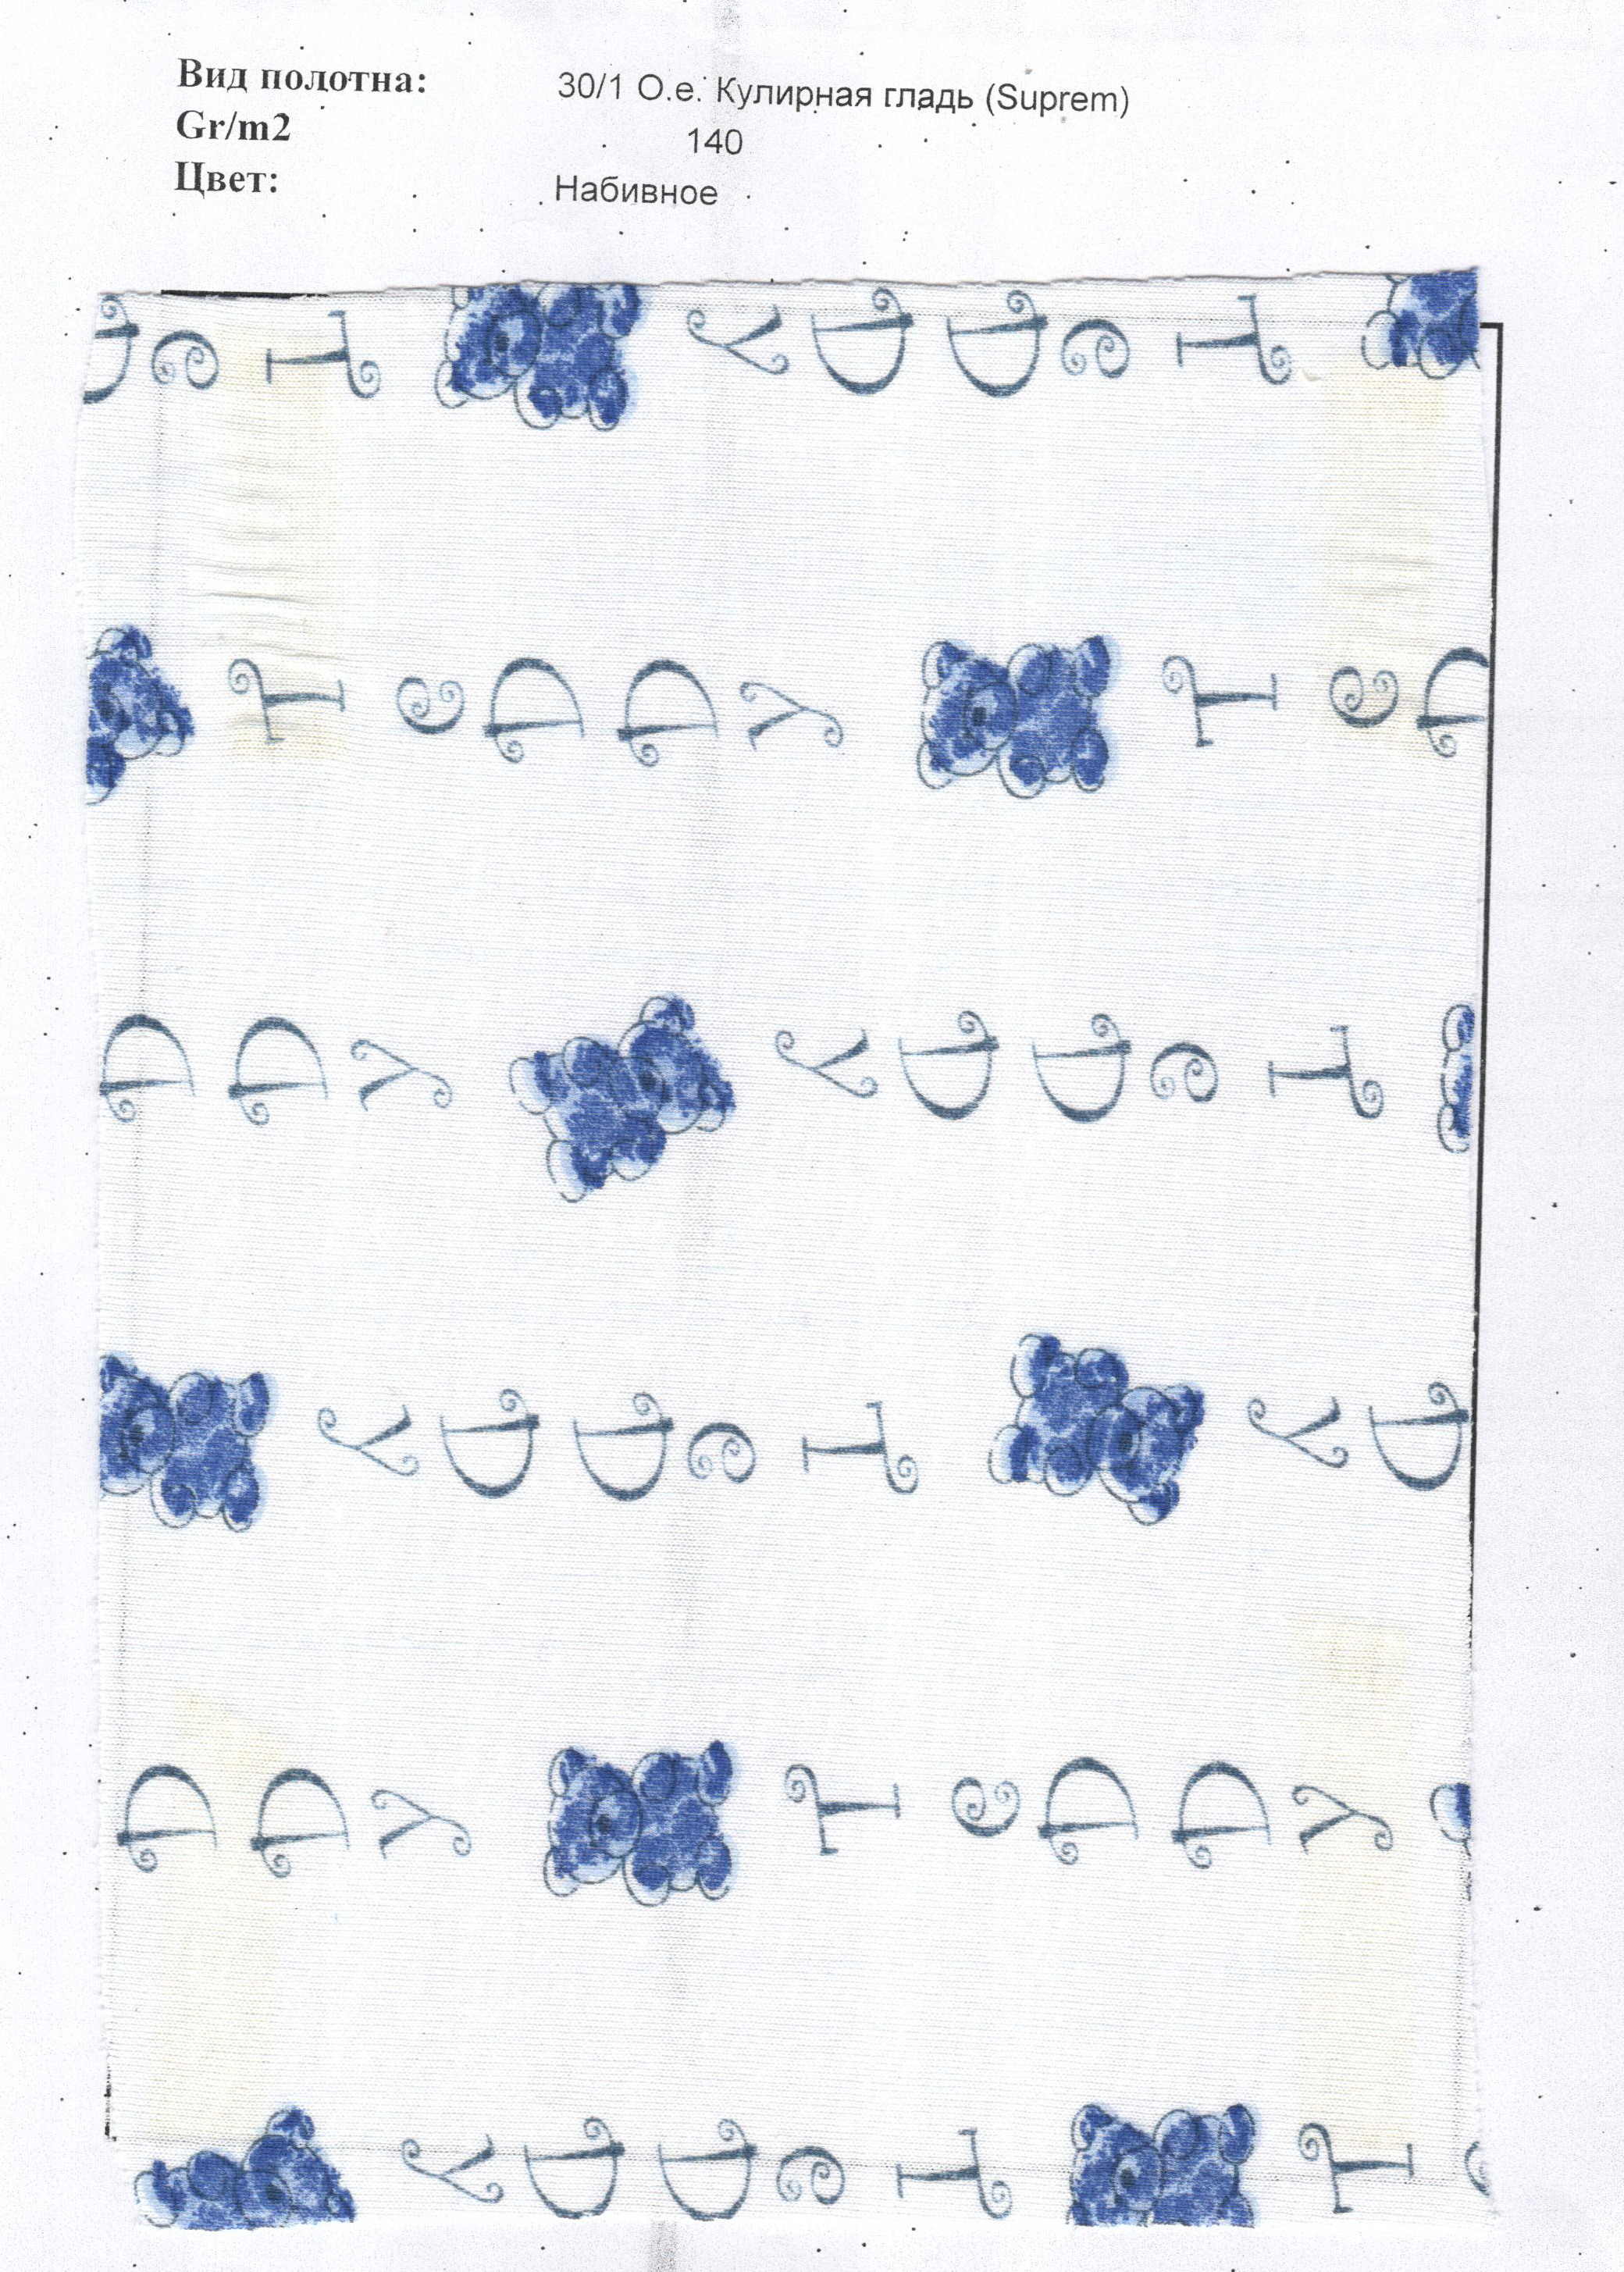 Вид полотна: 30/1 О.е. Кулирная гладь (Suprem)
Gr/m2 140
Цвет: Набивное
D e T y D D e T
T e D D y T e D
D D y y D D e T
y D D e T y D
D D y T e D D y
y D D e T T